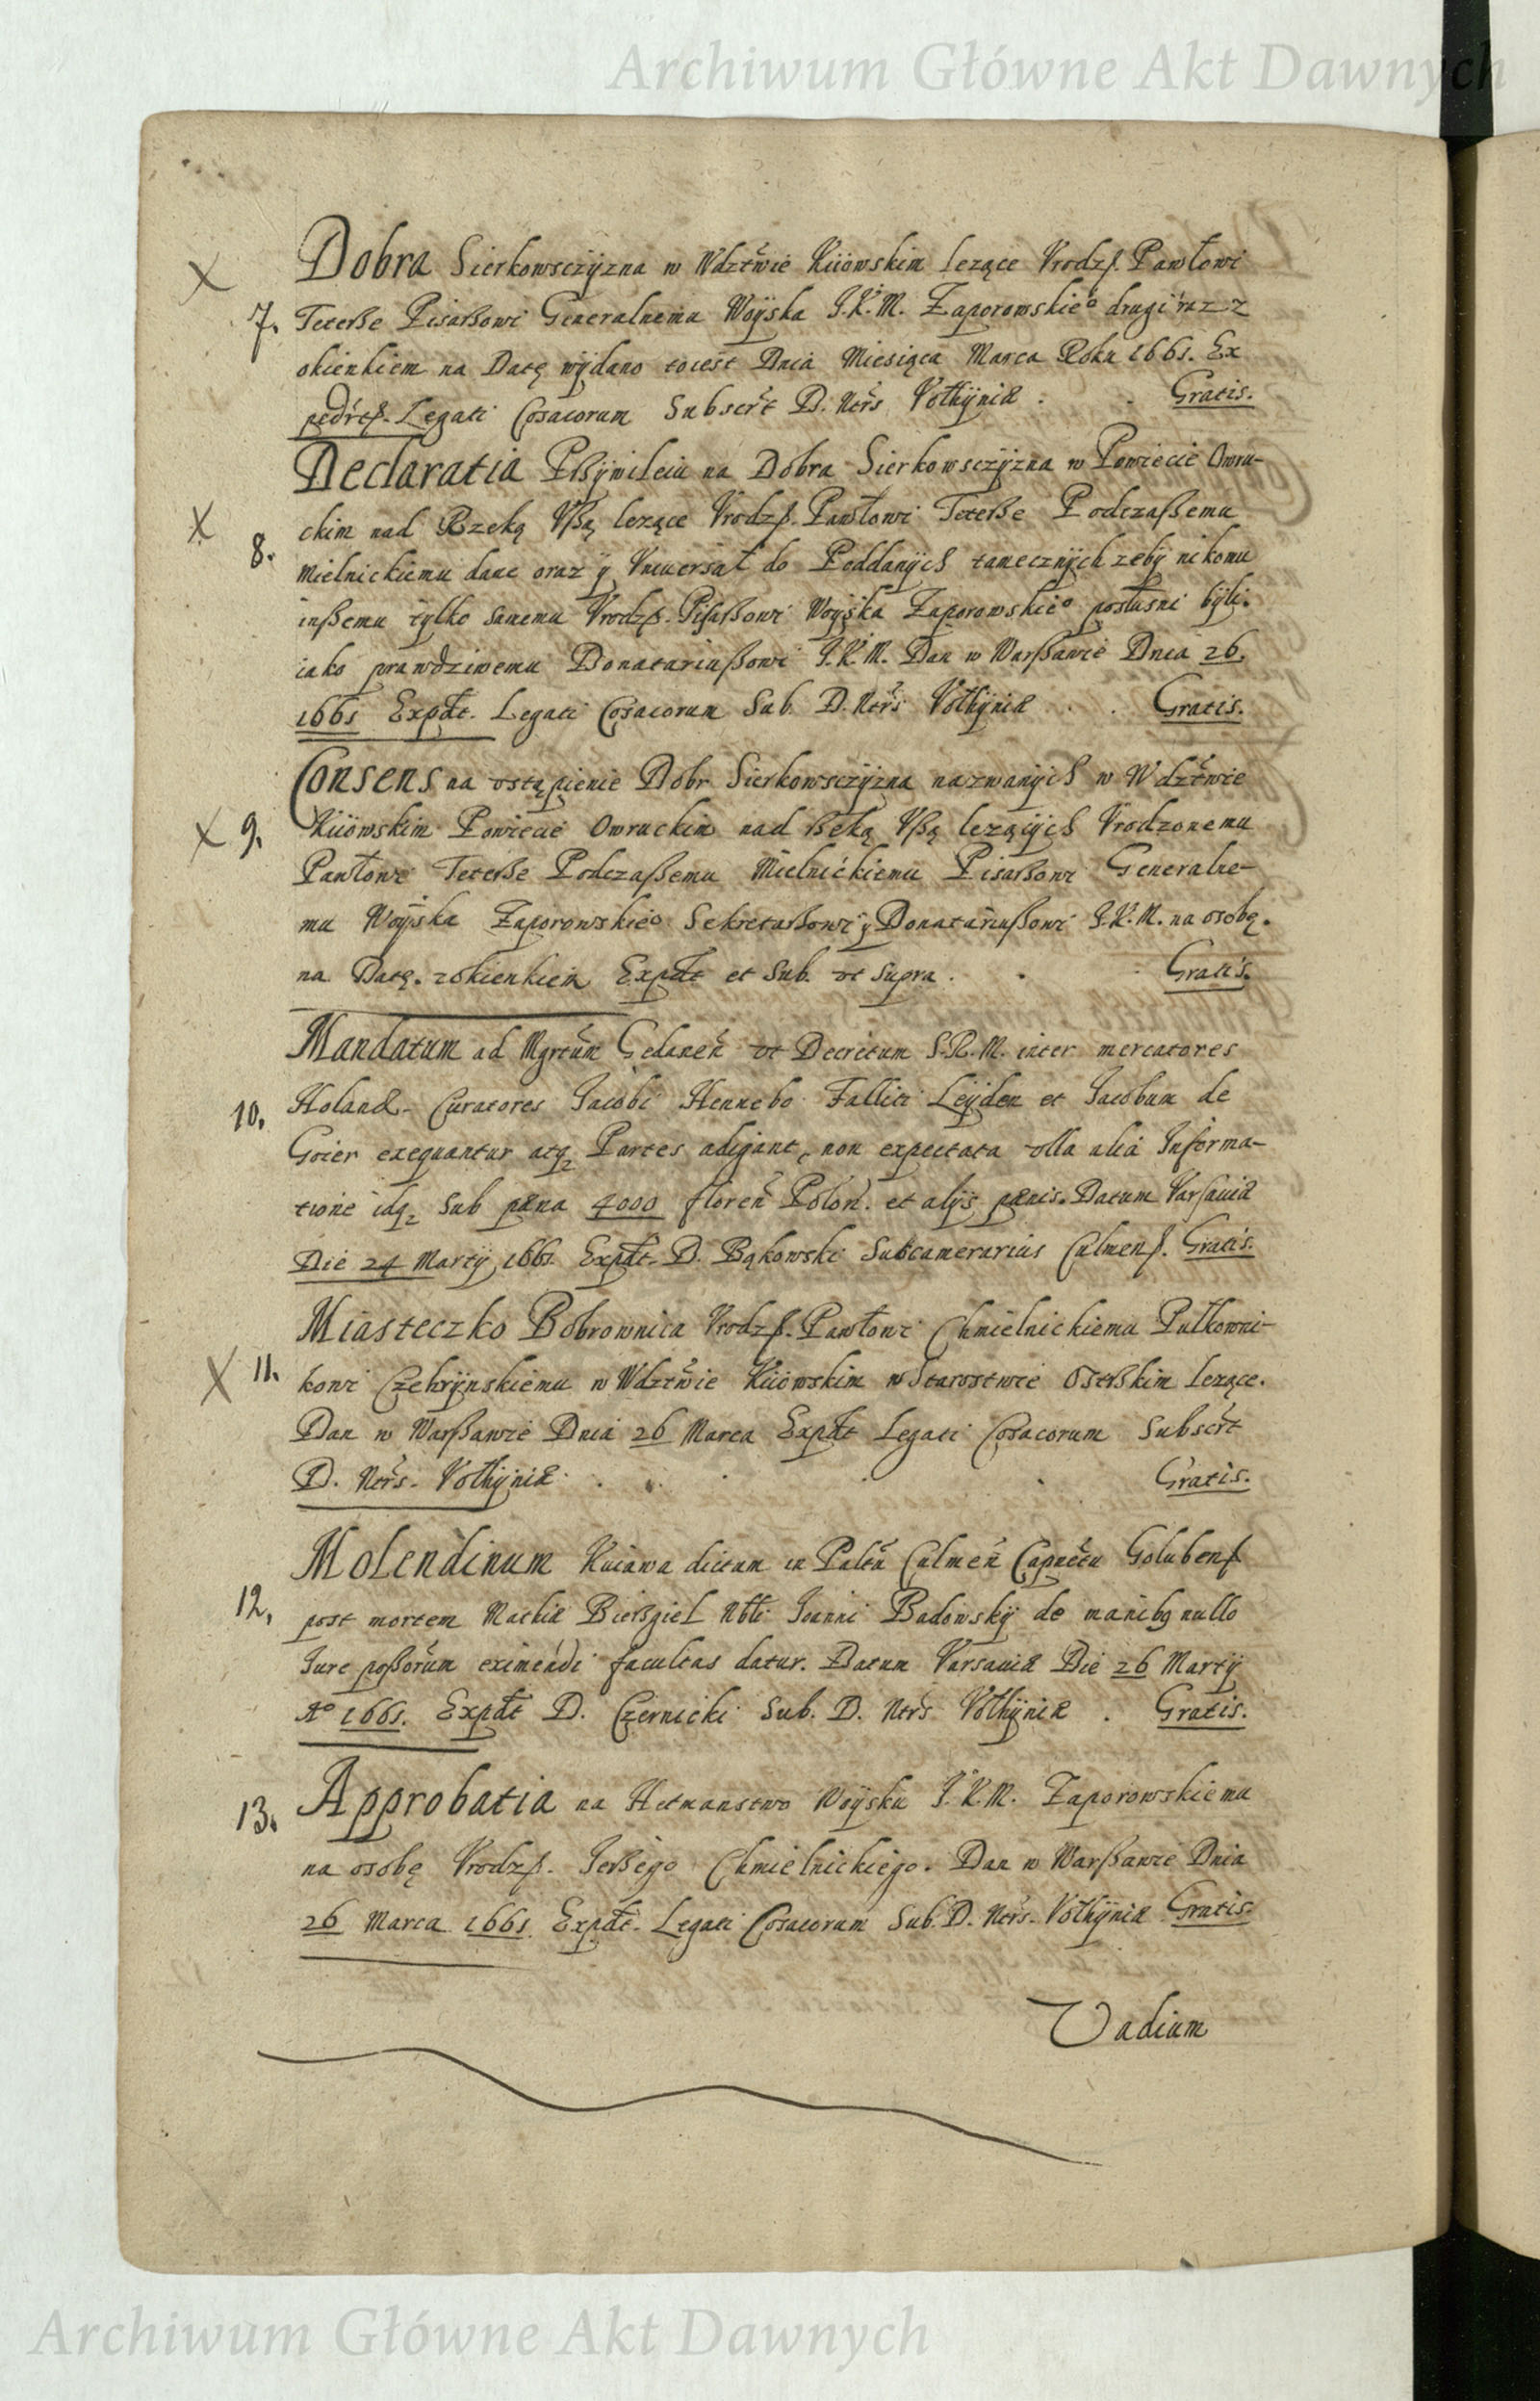 Archiwum Główne Akt Dawnych
Dobra Sierkowsczÿzna w Wdztwie Kiiowskim lezące Vrodz. Pawłowi
7. Teterße Pisarßowi Generalnemu Woÿska J.K.M. Zaporowskieo drugi raz z
okienkiem na Datę wÿdano toiest Dnia Miesiąca Marca Roku 1661. Ex
pedrt. Legati Cosacorum Subscrt D. Ntrs Vołhÿniæ . . Gratis.
Declaratia Prßÿwileiu na Dobra Sierkowsczÿzna w Powiecie Owru-
ckim nad Rzeką Vßą lezące Vrodz. Pawłowi Teterße Podczaßemu
8. Mielnickiemu dane oraz ÿ Vniuersał do Poddanÿch tamecznÿch zebÿ nikomu
inßemu tÿlko samemu Vrodz. Pisarßowi Woÿska Zaporowskieo posłusni bÿli.
iako prawdziwemu Donatariußowi J.K.M. Dan w Warßawie Dnia 26.
1661 Expdt. Legati Cosacorum Sub. D. Ntrs Vołhÿniæ . . Gratis.
Consens na vstąpienie Dobr Sierkowsczÿzna nazwanÿch w Wdztwie
9. Kiiowskim Powiecie Owruckim nad Rßeką Vßą lezącÿch Vrodzonemu
Pawłowi Teterße Podczaßemu Mielnickiemu Pisarßowi Generalne-
mu Woÿska Zaporowskieo Sekretarßowi ÿ Donatariußowi J.K.M. na osobę.
na Datę. zokienkiem Expdt et Sub. vt supra . . . Gratis.
Mandatum ad Mgrtum Gedanen vt Decretum S.R.M. inter mercatores
10. Holand. Curatores Jacobi Hennebo Falliti Leÿden et Jacobum de
Goier exequantur atq Partes adigant, non expectata vlla alia Informa-
tione idq sub pæna 4000 floren Polon. et alijs pænis. Datum Varsauiæ
Die 24 Martij 1661. Expdt. D. Bąkowski Subcamerarius Culmens. Gratis.
Miasteczko Bobrownica Vrodz. Pawłowi Chmielnickiemu Pułkowni-
11. kowi Czehrÿnskiemu w Wdztwie Kiiowskim w Starostwie Osterßkim lezące.
Dan w Warßawie Dnia 26 Marca Expdt Legati Cosacorum Subscrt
D. Ntrs. Vołhÿniæ . . . . . Gratis.
Molendinum Kuiawa dictum in Paltu Culmen Capnctu Golubens
12. post mortem Mathiæ Bierßgiel Nbli Joanni Badowskÿ de manibq nullo
Jure poßorum eximendi facultas datur. Datum Varsauiæ Die 26 Martij
Ao 1661. Expdt D. Czernicki Sub. D. Ntrs Vołhÿniæ . Gratis.
13. Approbatia na Hetmanstwo Woÿsku J.K.M. Zaporowskiemu
na osobę Vrodz. Jerßego Chmielnickiego. Dan w Warßawie Dnia
26 Marca 1661 Expdt. Legati Cosacorum Sub. D. Ntrs. Vołhÿniæ Gratis.
Vadium
Archiwum Główne Akt Dawnych